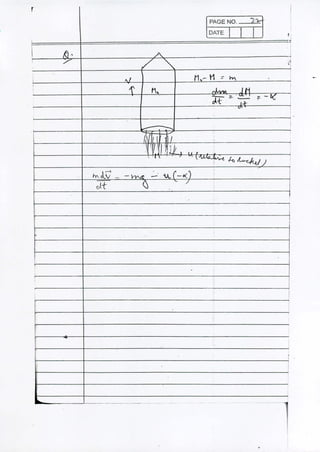 PAGE NO. 22
DATE
Q.
M₀ - M = m
v
↑
M₀
dm/dt = dM/dt = -α
u (relative to rocket)
m dv/dt = -mg - u(-α)